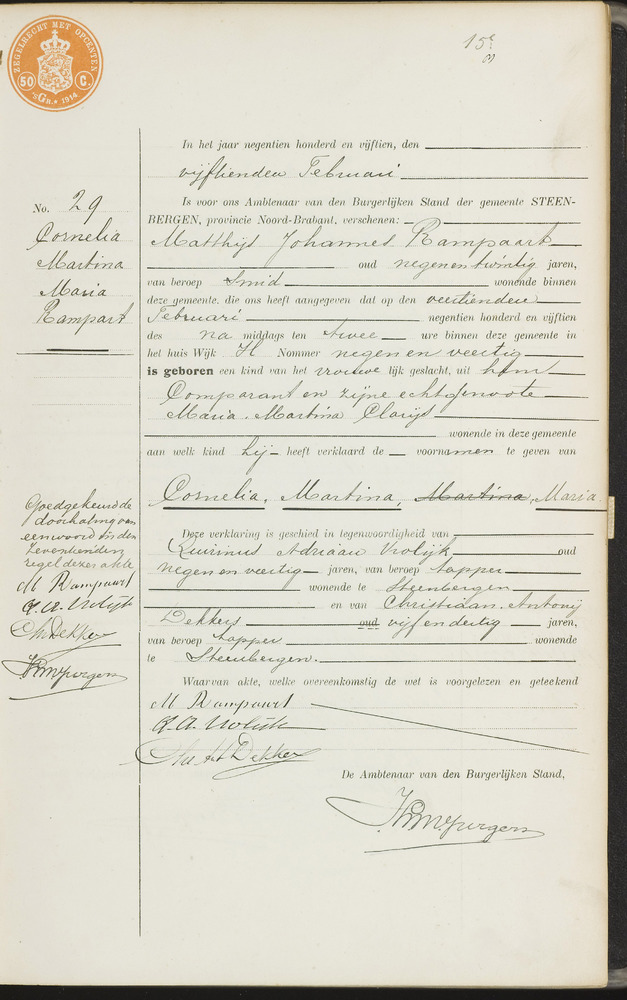 ZEGELRECHT MET OPCENTEN
50 C.
'sGR.* 1914
15e
In het jaar negentien honderd en vijftien, den
vijftienden Februari
Is voor ons Ambtenaar van den Burgerlijken Stand der gemeente STEEN-
BERGEN, provincie Noord-Brabant, verschenen:
Matthijs Johannes Rampaart
oud negenentwintig jaren,
van beroep Smid wonende binnen
deze gemeente, die ons heeft aangegeven dat op den veertienden
Februari negentien honderd en vijftien
des na middags ten twee ure binnen deze gemeente in
het huis Wijk H Nommer negen en veertig
is geboren een kind van het vrouwe lijk geslacht, uit hem
Comparant en zijne echtgenoote
Maria Martina Clarijs
wonende in deze gemeente
aan welk kind hij heeft verklaard de voornamen te geven van
Cornelia, Martina, Martina, Maria
Deze verklaring is geschied in tegenwoordigheid van
Quirinus Adriaan Vrolijk oud
negen en veertig jaren, van beroep tapper
wonende te Steenbergen
en van Christiaan Antonij
Dekkers oud vijf en dertig jaren,
van beroep tapper wonende
te Steenbergen.
Waarvan akte, welke overeenkomstig de wet is voorgelezen en geteekend
M Rampaart
Q. A. Vrolijk
Chr Ant Dekkers
De Ambtenaar van den Burgerlijken Stand,
No. 29
Cornelia
Martina
Maria
Rampart
Goedgekeurd de
doorhaling van
een woord in den
zeventienden
regel dezer akte
M Rampaart
Q. A. Vrolijk
Chr Dekkers